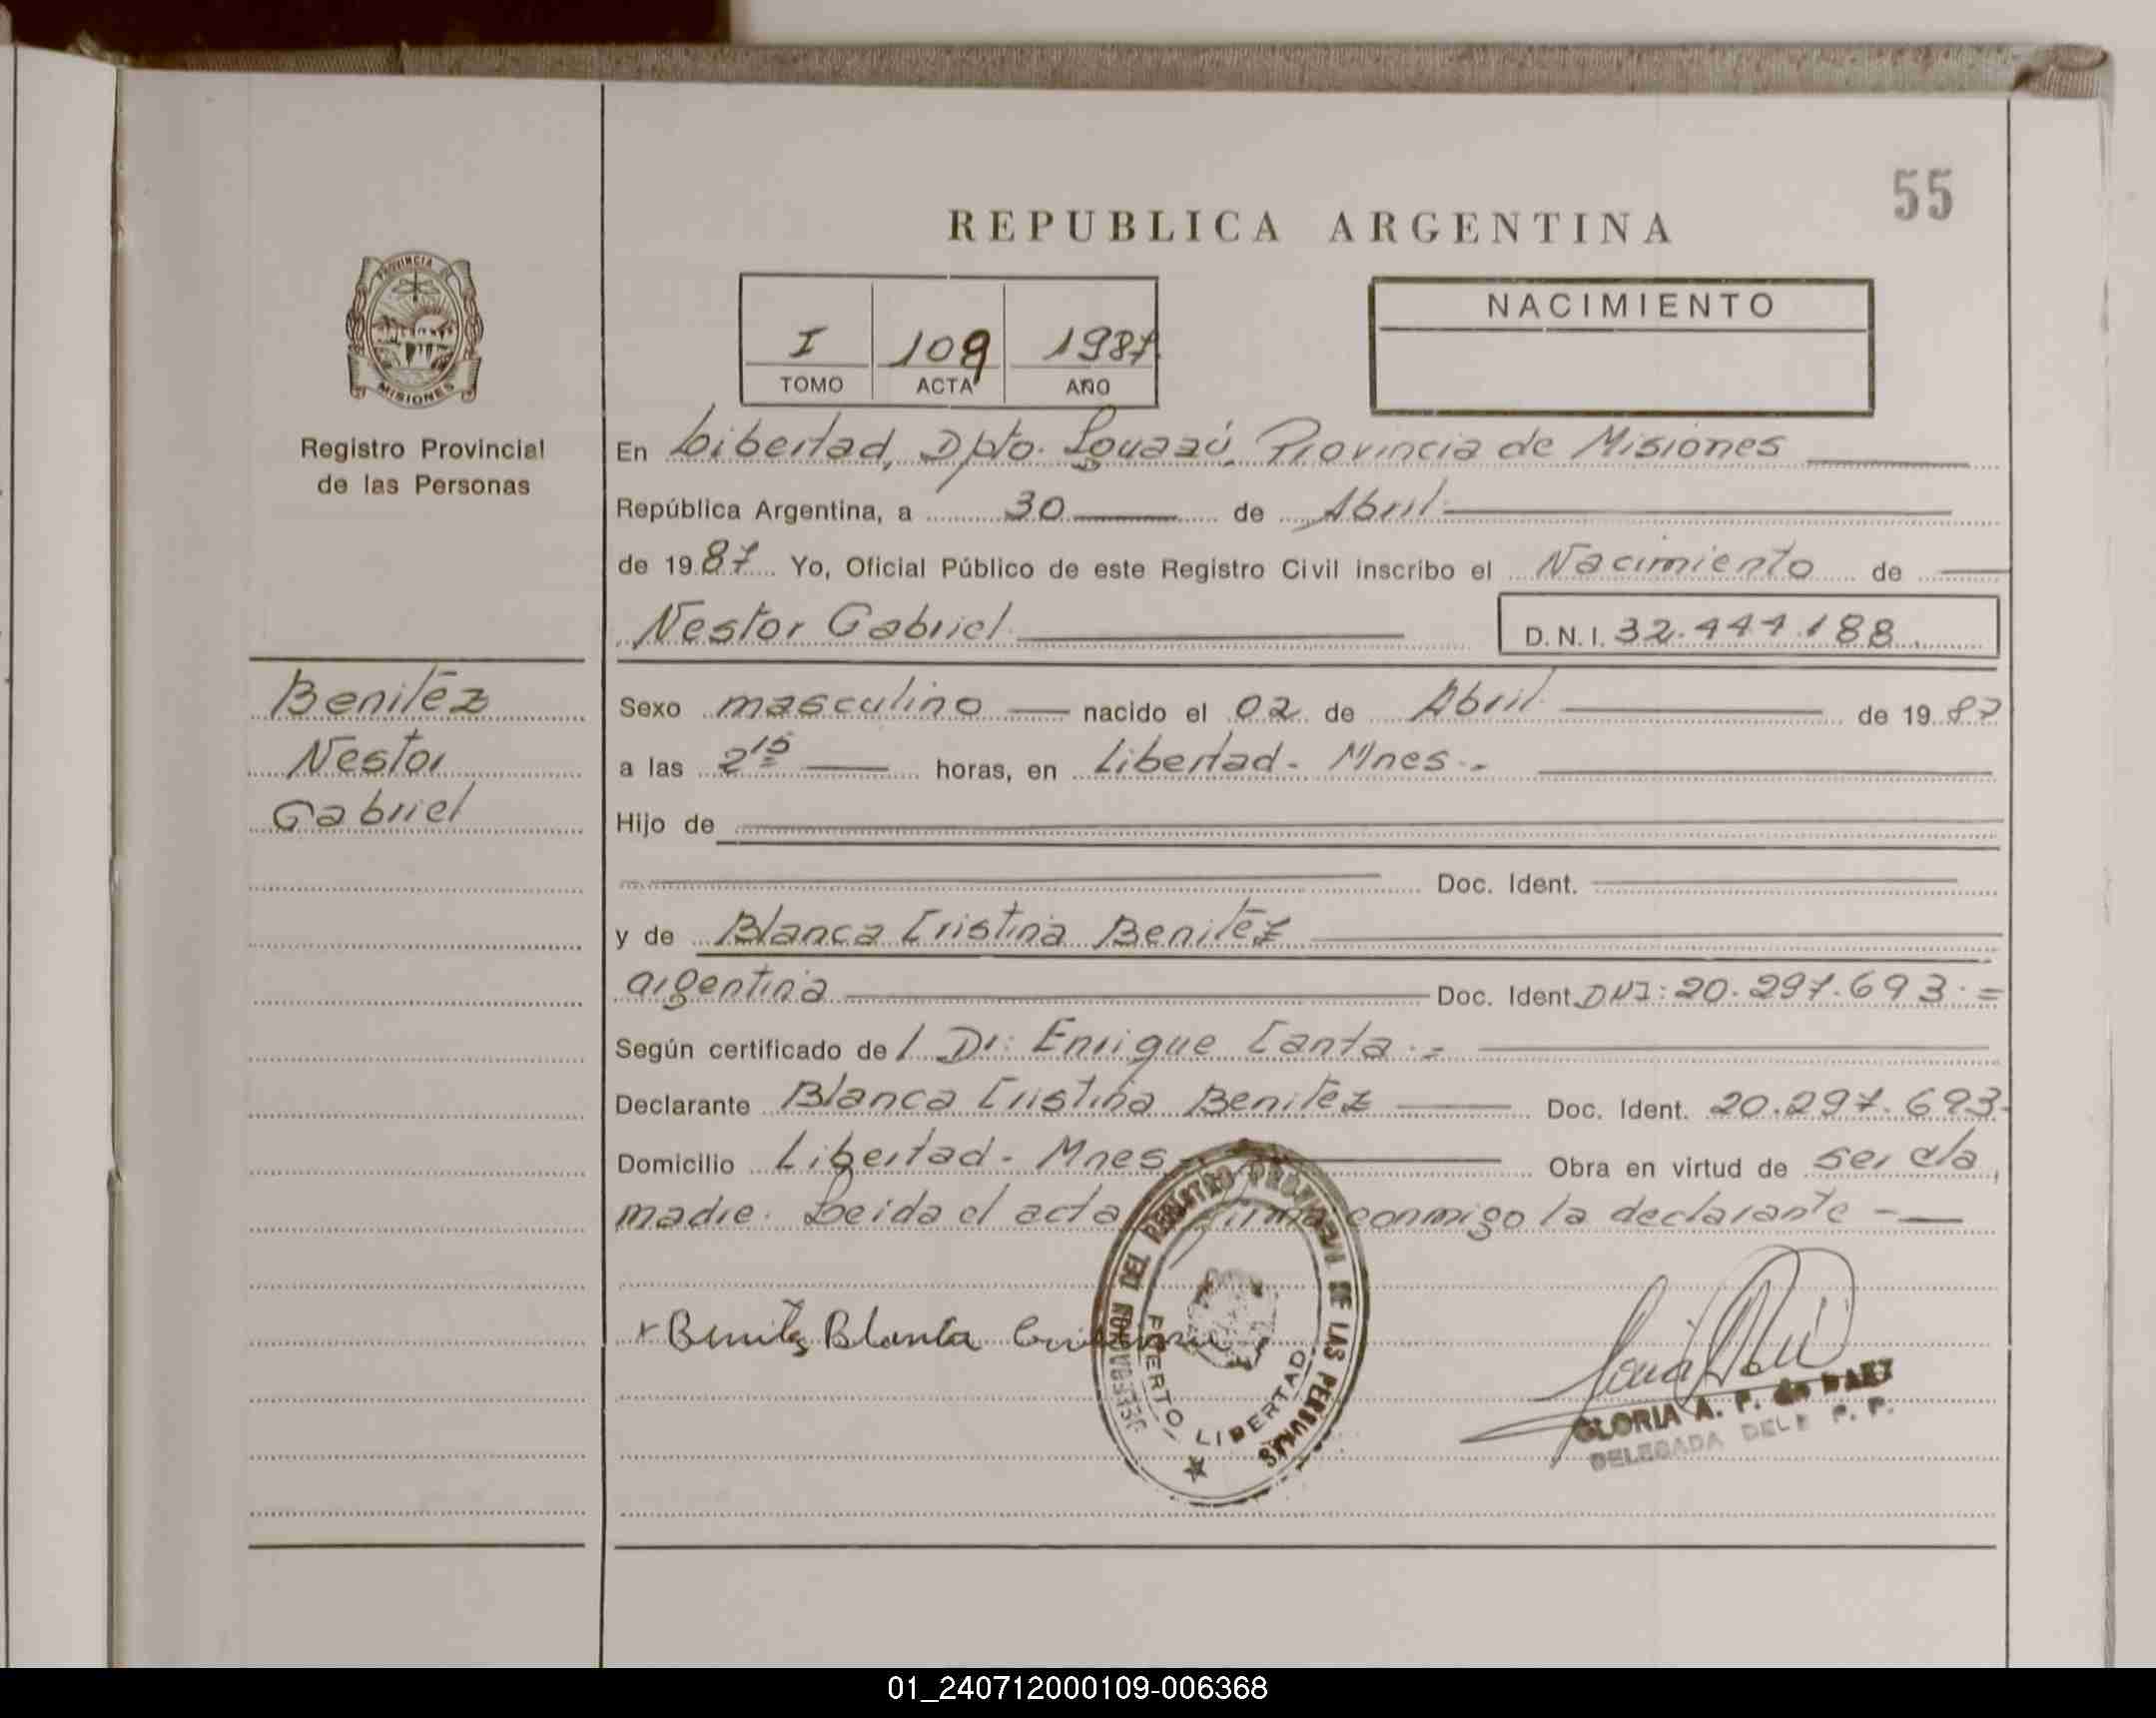 55
REPUBLICA ARGENTINA
PROVINCIA DE
MISIONES
Registro Provincial
de las Personas
NACIMIENTO
I 109 1987
TOMO ACTA AÑO
En Libertad, Dpto. Iguazú, Provincia de Misiones
República Argentina, a 30 de Abril
de 1987 Yo, Oficial Público de este Registro Civil inscribo el Nacimiento de
Nestor Gabriel D.N.I. 32.444.188
Benitez
Nestor
Gabriel
Sexo masculino nacido el 02 de Abril de 1987
a las 2 15 horas, en Libertad - Mnes.-
Hijo de
Doc. Ident.
y de Blanca Cristina Benitez
argentina Doc. Ident. DNI: 20.297.693.=
Según certificado del Dr. Enrique Canta.=
Declarante Blanca Cristina Benitez Doc. Ident. 20.297.693.
Domicilio Libertad - Mnes Obra en virtud de ser la
madre. Leida el acta firma conmigo la declarante -
DEL REGISTRO PROVINCIAL DE LAS PERSONAS
PUERTO LIBERTAD
x Benitez Blanca
GLORIA A. P. de PAEZ
DELEGADA DEL R. P. P.
01_240712000109-006368